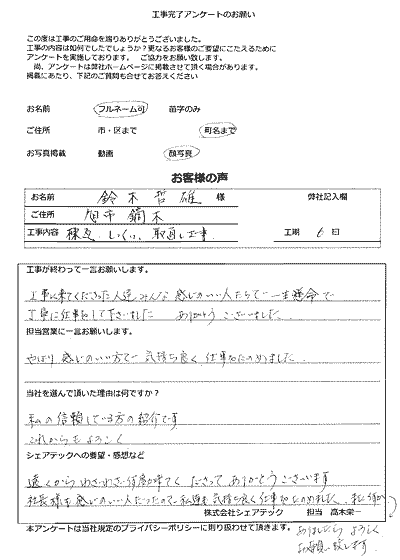 工事完了アンケートのお願い
この度は工事のご用命を賜りありがとうございました。
工事の内容は如何でしたでしょうか？更なるお客様のご要望にこたえるために
アンケートを実施しております。 ご協力をお願い致します。
尚、アンケートは弊社ホームページに掲載させて頂く場合があります。
掲載にあたり、下記のご質問も合せてお答えください
お名前 フルネーム可 苗字のみ
ご住所 市・区まで 町名まで
お写真掲載 動画 顔写真
お客様の声
お名前 鈴木哲雄 様 弊社記入欄
ご住所 旭市 鏑木
工事内容 棟瓦 しっくい 取直し工事 工期 6 日
工事が終わって一言お願いします。
工事に来てくださった人達みんな感じのいい人たちで一生懸命で
丁寧に仕事をして下さいました ありがとうございました。
担当営業に一言お願いします。
やはり感じのいい方で気持ち良く仕事をたのめました
当社を選んで頂いた理由は何ですか？
私の信頼している方の紹介です
これからもよろしく
シェアテックへの要望・感想など
遠くからわざわざ何度か来てくださってありがとうございます
社長様も感じのいい人だったので私達も気持ち良く仕事をたのめました。私に何か
株式会社シェアテック 担当 高木栄一
本アンケートは当社規定のプライバシーポリシーに則り扱わせて頂きます。
ありましたら よろしく
お願い致します